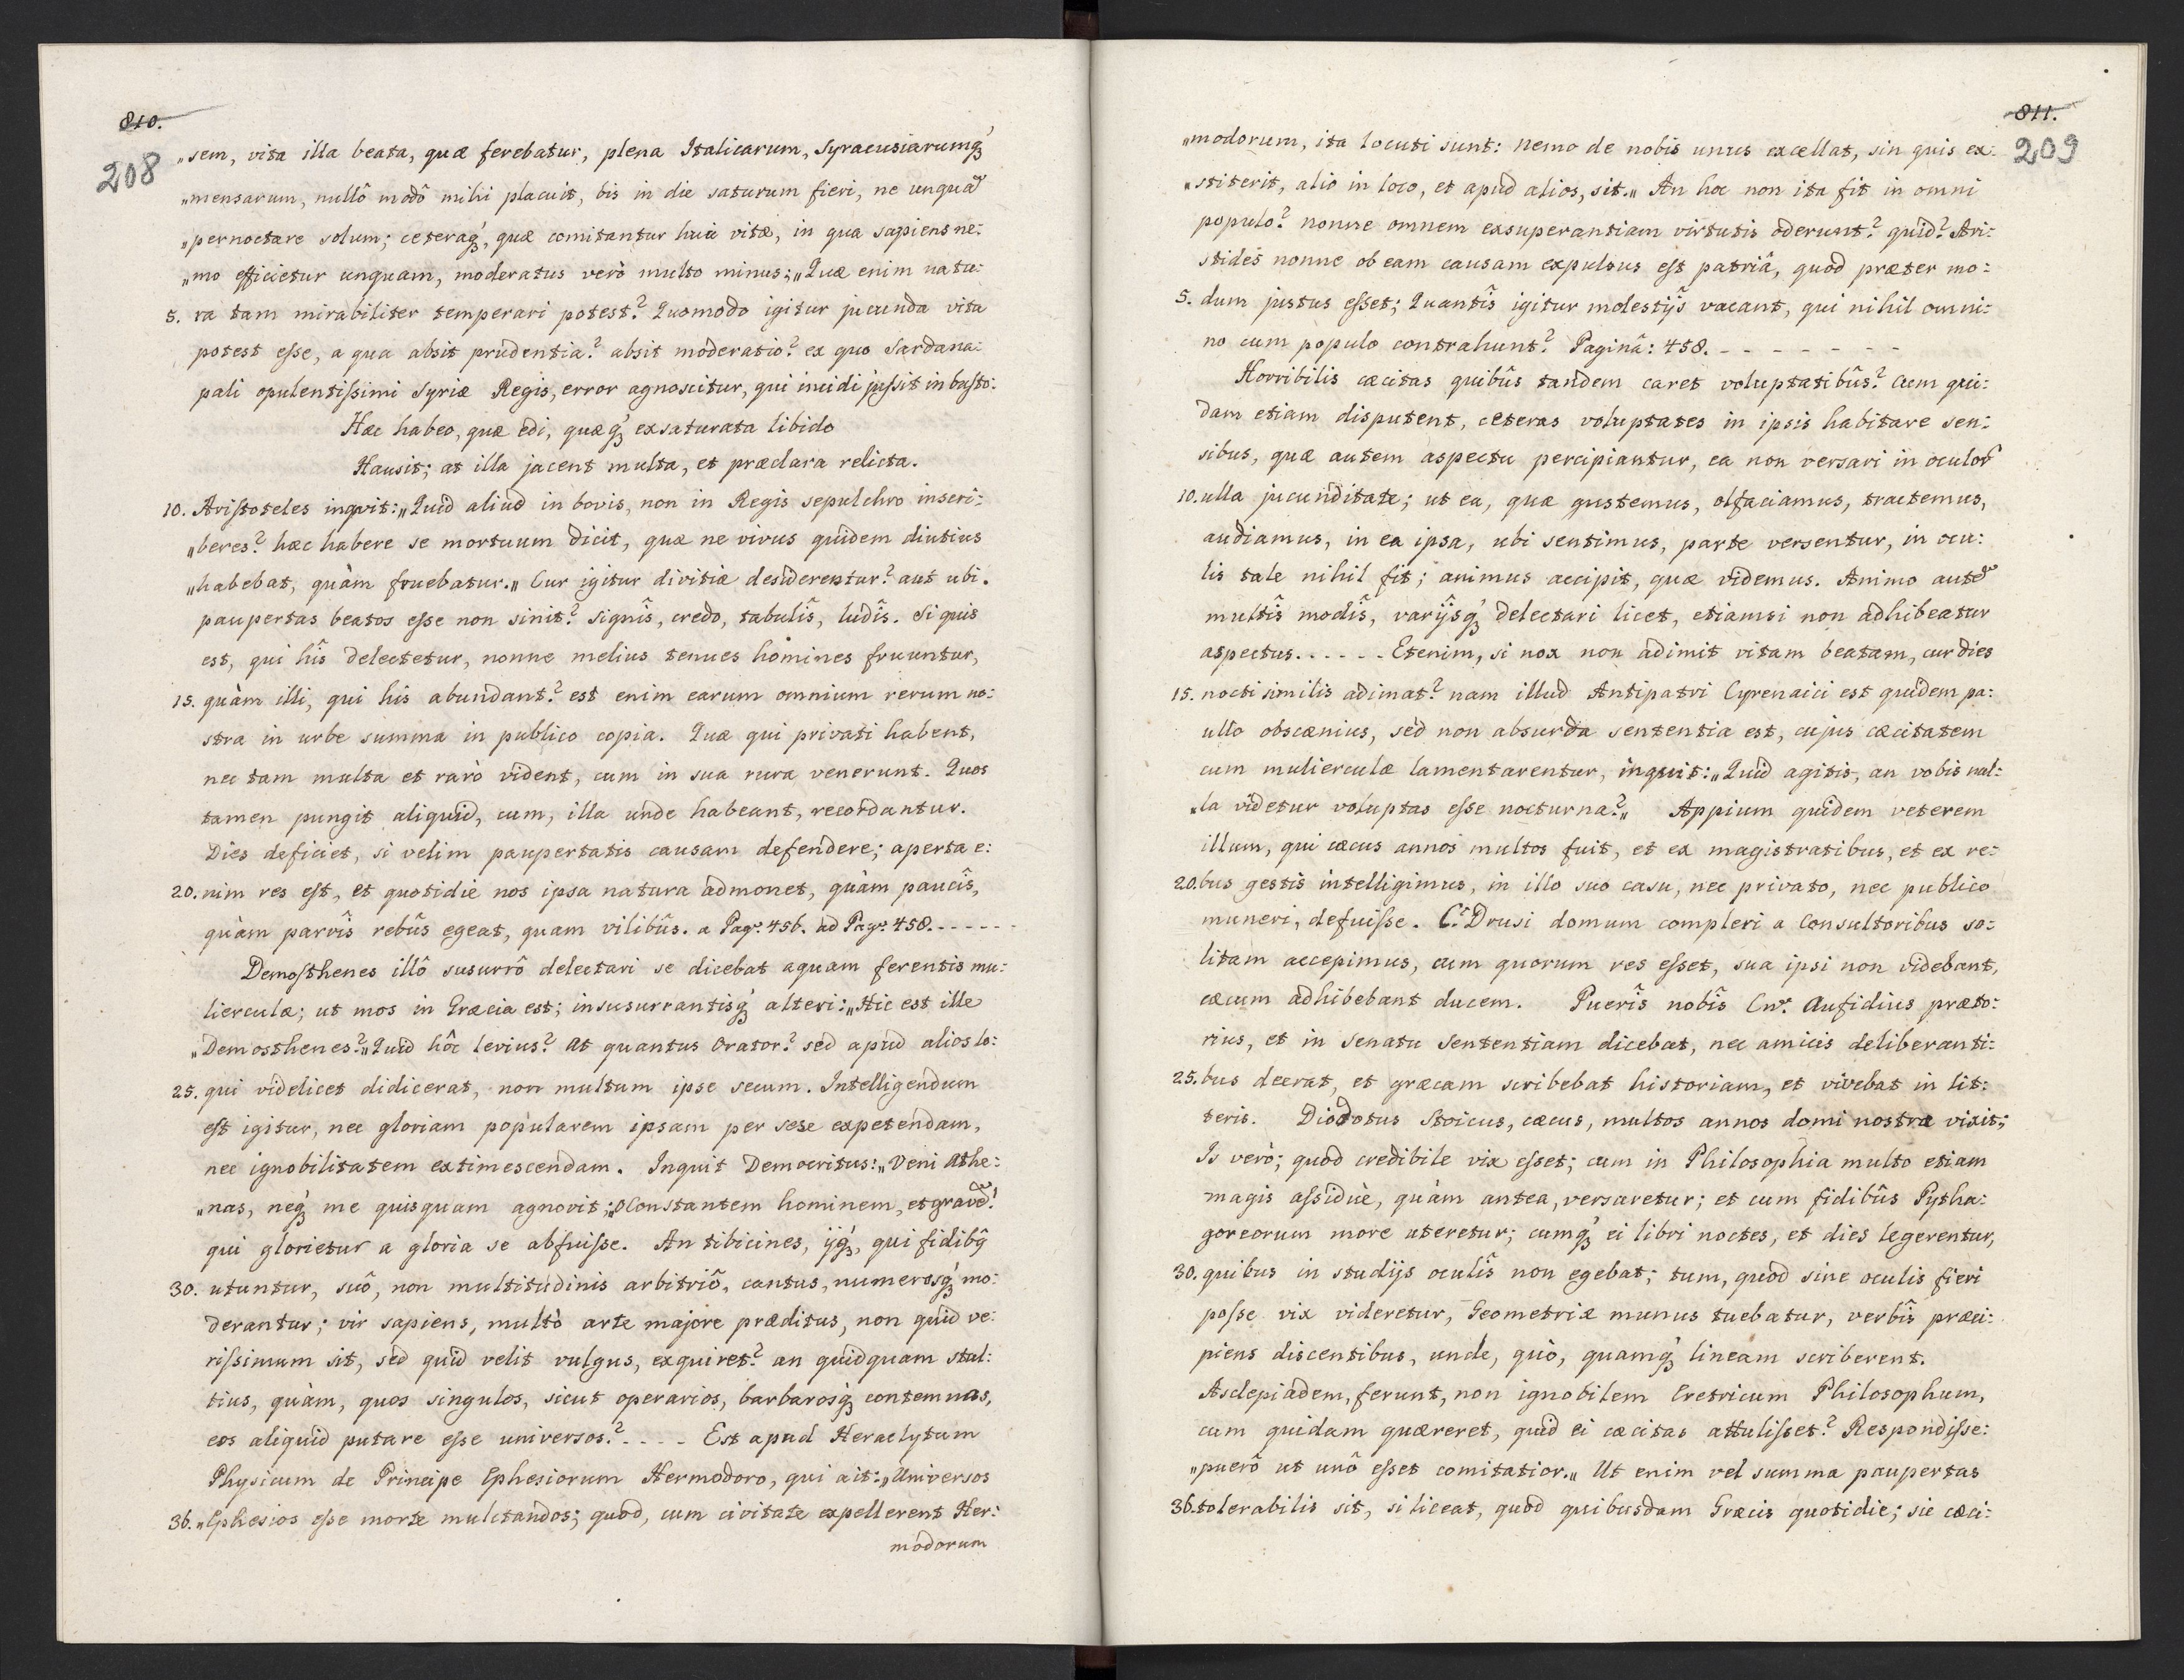 810.
208
„sem, vita illa beata, quæ ferebatur, plena Italicarum, Syracusiarumq́ȝ
„mensarum, nullô modô mihi placuit, bis in die saturum fieri, ne unquā
„pernoctare solum; ceteraq́ȝ, quæ comitantur huic vitæ, in qua sapiens ne:
„mo efficietur unquam, moderatus verò multo minus;„ Quæ enim natu:
5. ra tam mirabiliter temperari potest? Quomodo igitur jucunda vita
potest eſse, a qua absit prudentia? absit moderatio? ex quo Sardana:
pali opulentiſsimi Syriæ Regis, error agnoscitur, qui incidi juſsit in busto:
Hæc habeo, quæ edi, quæq́ȝ exsaturata libido
Hausit; at illa jacent multa, et præclara relicta.
10. Aristoteles inqvit: „Quid aliud in bovis, non in Regis sepulchro inscri:
„beres? hæc habere se mortuum dicit, quæ ne vivus quidem diutius
„habebat, quàm fruebatur.„ Cur igitur divitiæ desiderentur? aut ubi.
paupertas beatos eſse non sinit? signîs, credo, tabulîs, ludîs. Si quis
est, qui hîs delectetur, nonne melius tenues homines fruuntur,
15. quàm illi, qui his abundant? est enim earum omnium rerum no:
stra in urbe summa in publico copia. Quæ qui privati habent,
nec tam multa et rarò vident, cum in sua rura venerunt. Quos
tamen pungit aliquid, cum, illa unde habeant, recordantur.
Dies deficiet, si velim paupertatis causam defendere; aperta e:
20. nim res est, et quotidie nos ipsa natura admonet, quàm paucîs,
quàm parvîs rebûs egeat, quam vilibûs. a Pag. 456. ad Pag. 458. - - - - - -
Demosthenes illô susurrô delectari se dicebat aquam ferentis mu:
lierculæ; ut mos in Græcia est; insusurrantisq́ȝ alteri: „Hic est ille
„Demosthenes?„ Quid hôc levius? At quantus Orator? sed apud alios lo:
25. qui videlicet didicerat, non multum ipse secum. Intelligendum
est igitur, nec gloriam popularem ipsam per sese expetendam,
nec ignobilitatem extimescendam. Inquit Democritus: „Veni Athe:
„nas, neq́ȝ me quisquam agnovit;„ O Constantem hominem, et gravē!
qui glorietur a gloria se abfuiſse. An tibicines, ijq́ȝ, qui fidibq̂
30. utuntur, suô, non multitudinis arbitriô, cantus, numerosq́ȝ mo:
derantur; vir sapiens, multò arte majore præditus, non quid ve:
riſsimum sit, sed quid velit vulgus, exquiret? an quidquam stul:
tius, quàm, quos singulos, sicut operarios, barbarosq́ȝ contemnas,
eos aliquid putare eſse universos? - - - - Est apud Heraclytum
Physicum de Principe Ephesiorum Hermodoro, qui ait: „Universos
36. „Ephesios eſse morte mulctandos; quod, cum civitate expellerent Her:
modorum
811.
209
„modorum, ita locuti sunt: nemo de nobis unus excellat, sin quis ex:
„stiterit, alio in loco, et apud alios, sit.„ An hoc non ita fit in omni
populo? nonne omnem exsuperantiam virtutis oderunt? quid? Ari:
stides nonne ob eam causam expulsus est patriâ, quod præter mo:
5. dum justus eſset; Quantîs igitur molestijs vacant, qui nihil omni:
no cum populo contrahunt? Paginâ: 458. - - - - - - -
Horribilis cæcitas quibûs tandem caret voluptatibûs? Cum qui:
dam etiam disputent, ceteras voluptates in ipsis habitare sen:
sibus, quæ autem aspectu percipiantur, ea non versari in oculoꝝ
10. ulla jucunditate; ut ea, quæ gustemus, olfaciamus, tractemus,
audiamus, in ea ipsa, ubi sentimus, parte versentur, in ocu:
lis tale nihil fit; animus accipit, quæ videmus. Animo autē
multîs modîs, varijsq́ȝ delectari licet, etiamsi non adhibeatur
aspectus. - - - - - Etenim, si nox non adimit vitam beatam, cur dies
15. nocti similis adimat? nam illud Antipatri Cyrenaici est quidem pa:
ullo obscænius, sed non absurda sententia est, cujus cæcitatem
cum mulierculæ lamentarentur, inquit: „Quid agitis, an vobis nul:
„la videtur voluptas esse nocturna?„ Appium quidem veterem
illum, qui cæcus annos multos fuit, et ex magistratibus, et ex re:
20. bus gestis intelligimus, in illo suo casu, nec privato, nec publico
muneri, defuiſse. C. Drusi domum compleri a Consultoribus so:
litam accepimus, cum quorum res eſset, sua ipsi non videbant,
cæcum adhibebant ducem. Puerîs nobîs Cn. Aufidius præto:
rius, et in Senatu Sententiam dicebat, nec amicis deliberanti:
25. bus deerat, et græcam scribebat historiam, et vivebat in lit:
teris. Diodotus Stoicus, cæcus, multos annos domi nostræ vixit;
Is verò; quod credibile vix eſset; cum in Philosophia multo etiam
magis aſsiduè, quàm antea, versaretur; et cum fidibûs Pytha:
goreorum more uteretur; cumq́ȝ ei libri noctes, et dies legerentur,
30. quibus in studijs oculîs non egebat; tum, quod sine oculis fieri
poſse vix videretur, Geometriæ munus tuebatur, verbîs præci:
piens discentibus, unde, quò, quamq́ȝ lineam scriberent.
Asclepiadem, ferunt, non ignobilem Eretricum Philosophum,
cum quidam quæreret, quid ei cæcitas attuliſset? Respondiſse:
„puerô ut unô eſset comitatior.„ Ut enim vel summa paupertas
36. tolerabilis sit, si liceat, quod quibusdam Græcis quotidie; sic cæci: